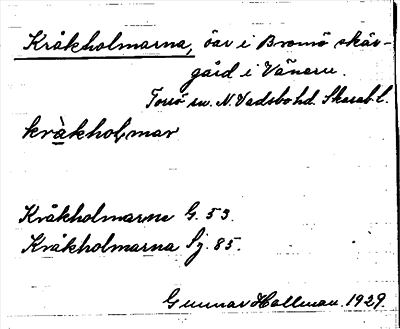 Kråkholmarna, öar i Bromö skär-
gård i Vänern.
Torsö sn. N. Vadsbo hd. Skarab. l.
kråkhoḷmar
Kråkholmarne G. 53.
Kråkholmarna Sj. 85.
Gunnar Hallman. 1929.